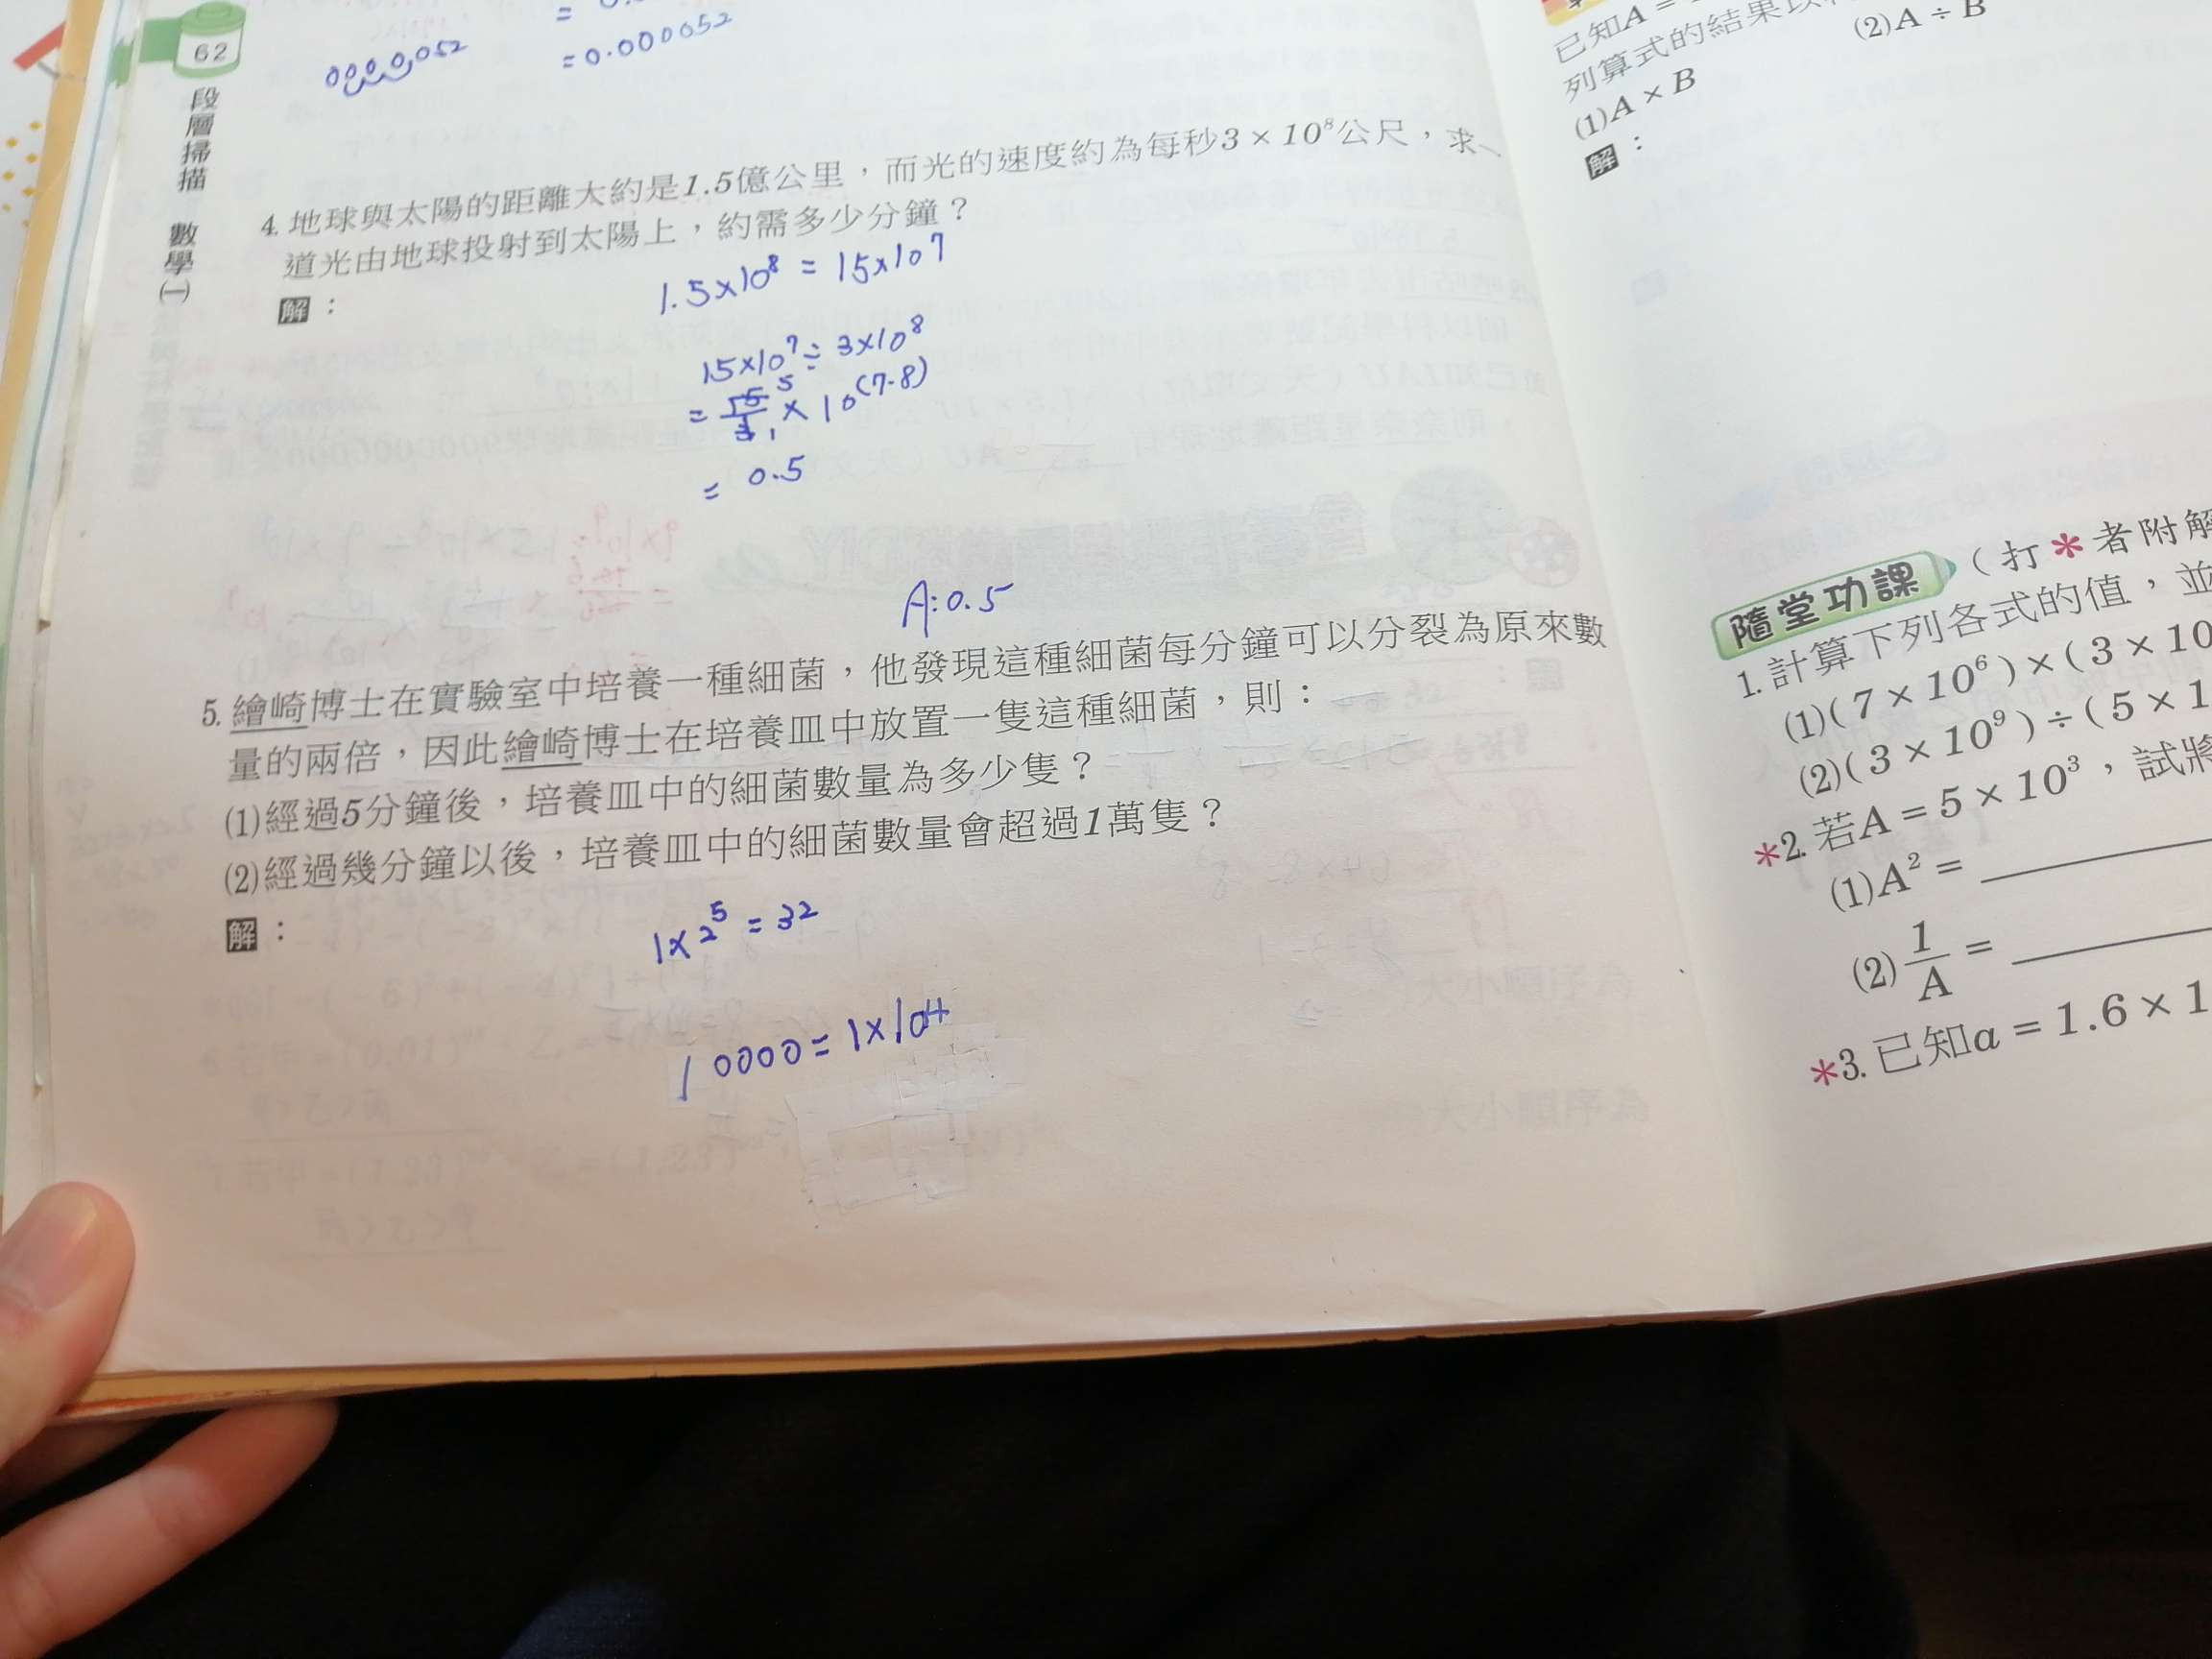 62
段層掃描 數學(一)
0000052
=
= 0.000052
4. 地球與太陽的距離大約是1.5億公里，而光的速度約為每秒3×10⁸公尺，求一
道光由地球投射到太陽上，約需多少分鐘？
解：
1.5×10⁸ = 15×10⁷
15×10⁷ ÷ 3×10⁸
= 15/3 5 1 × 10^(7-8)
= 0.5
A:0.5
5. 繪崎博士在實驗室中培養一種細菌，他發現這種細菌每分鐘可以分裂為原來數
量的兩倍，因此繪崎博士在培養皿中放置一隻這種細菌，則：
(1)經過5分鐘後，培養皿中的細菌數量為多少隻？
(2)經過幾分鐘以後，培養皿中的細菌數量會超過1萬隻？
解：
1×2⁵ = 32
10000 = 1×10⁴
已知A =
列算式的結果以
(1)A × B
(2)A ÷ B
解：
隨堂功課（打＊者附解
1. 計算下列各式的值，並
(1)( 7 × 10⁶ ) × ( 3 × 10
(2)( 3 × 10⁹ ) ÷ ( 5 × 1
＊2. 若A = 5 × 10³，試將
(1)A² =
(2) 1/A =
＊3. 已知a = 1.6 × 1